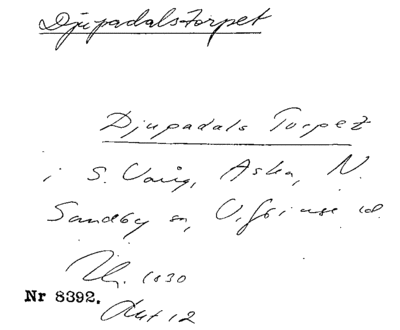 Djupadalstorpet
Djupadals Torpet
i S. Vång, Aska, N.
Sandby sn, V. Göinge hd.
1830
Nr 8392.
Akt 12